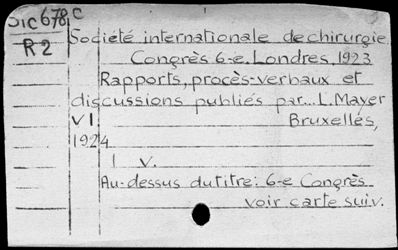 Sic678,c
R2
Société internationale de chirurgie
Congrès 6-e. Londres, 1923
Rapports, procès-verbaux et
discussions publiés par... L. Mayer
VI
Bruxelles,
1924
1 v.
Au-dessus du titre: 6-e Congrès
voir carte suiv.